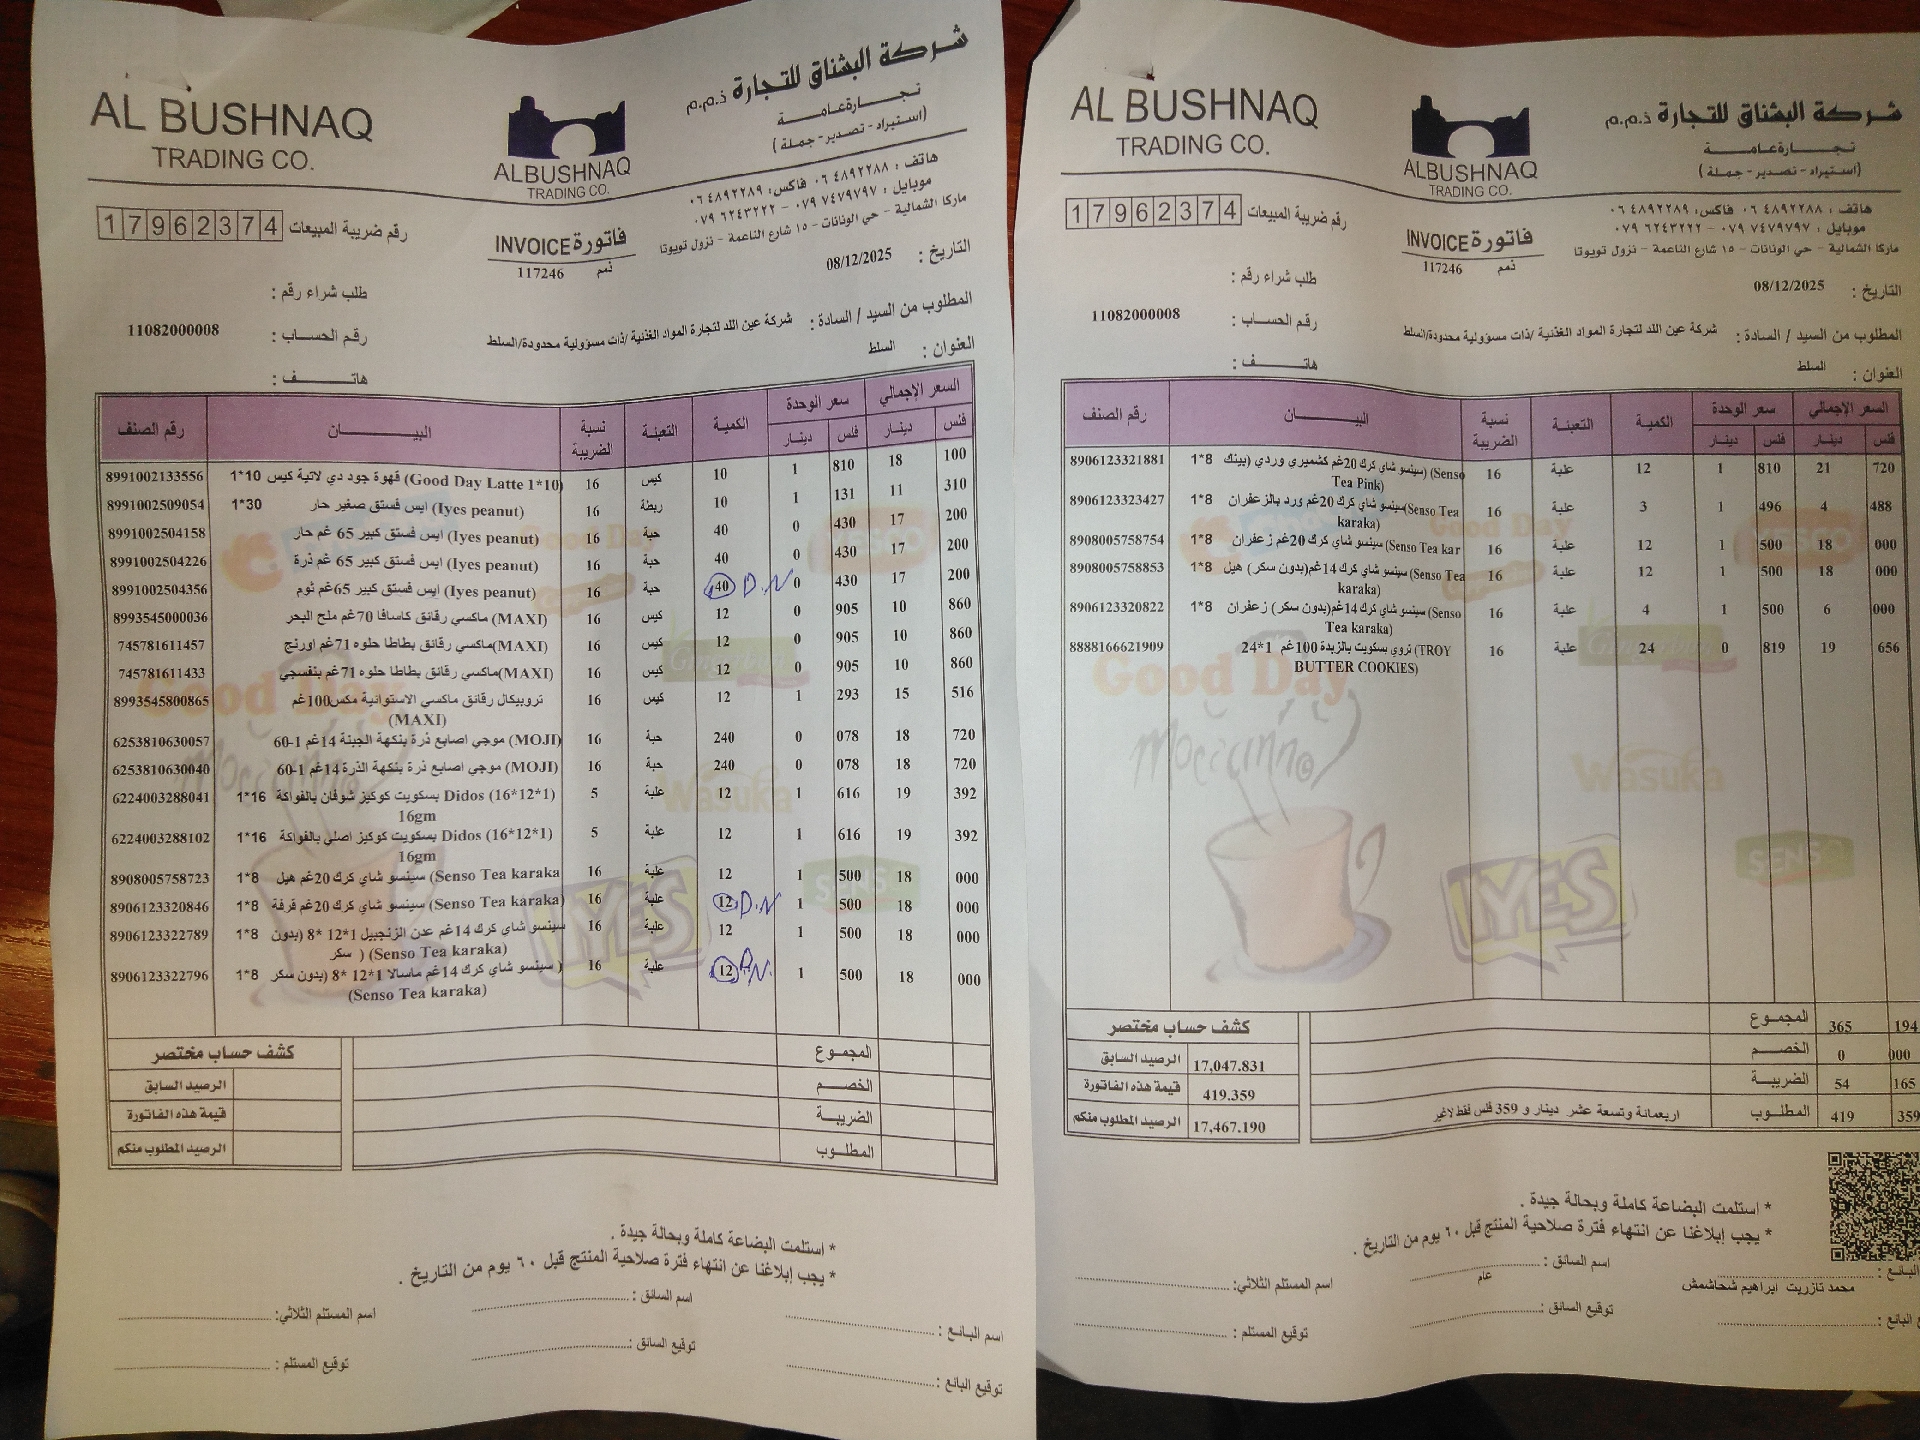 شركة البشناق للتجارة ذ.م.م
تجارة عامة
(استيراد - تصدير - جملة)
هاتف : ٠٦ ٤٨٩٢٢٨٨ فاكس: ٠٦ ٤٨٩٢٢٨٩
موبايل : ٠٧٩ ٧٤٧٩٧٩٧ - ٠٧٩ ٦٢٤٣٢٢٢
ماركا الشمالية - حي الونانات - ١٥ شارع الناعمة - نزول تويوتا
ALBUSHNAQ
TRADING CO.
AL BUSHNAQ
TRADING CO.
رقم ضريبة المبيعات 17962374
فاتورة INVOICE
ذمم 117246
التاريخ : 08/12/2025
طلب شراء رقم :
المطلوب من السيد / السادة : شركة عين اللد لتجارة المواد الغذئية /ذات مسؤولية محدودة/السلط
رقم الحساب : 11082000008
العنوان : السلط
هاتف :
السعر الإجمالي سعر الوحدة الكمية التعبئة نسبة الضريبة البيان رقم الصنف
فلس دينار فلس دينار
100 18 810 1 10 كيس 16 قهوة جود دي لاتية كيس 10*1 (Good Day Latte 1*10) 8991002133556
310 11 131 1 10 ربطة 16 ايس فستق صغير حار (Iyes peanut) 30*1 8991002509054
200 17 430 0 40 حبة 16 ايس فستق كبير 65 غم حار (Iyes peanut) 8991002504158
200 17 430 0 40 حبة 16 ايس فستق كبير 65 غم ذرة (Iyes peanut) 8991002504226
200 17 430 0 40 D.N حبة 16 ايس فستق كبير 65غم ثوم (Iyes peanut) 8991002504356
860 10 905 0 12 كيس 16 ماكسي رقائق كاسافا 70غم ملح البحر (MAXI) 8993545000036
860 10 905 0 12 كيس 16 ماكسي رقائق بطاطا حلوه 71غم اورنج (MAXI) 745781611457
860 10 905 0 12 كيس 16 ماكسي رقائق بطاطا حلوه 71غم بنفسجي (MAXI) 745781611433
516 15 293 1 12 كيس 16 تروبيكال رقائق ماكسي الاستوائية مكس100غم (MAXI) 8993545800865
720 18 078 0 240 حبة 16 موجي اصابع ذرة بنكهة الجبنة 14غم 1-60 (MOJI) 6253810630057
720 18 078 0 240 حبة 16 موجي اصابع ذرة بنكهة الذرة 14غم 1-60 (MOJI) 6253810630040
392 19 616 1 12 علبة 5 بسكويت كوكيز شوفان بالفواكة 16*1 Didos (16*12*1) 16gm 6224003288041
392 19 616 1 12 علبة 5 بسكويت كوكيز اصلي بالفواكة 16*1 Didos (16*12*1) 16gm 6224003288102
000 18 500 1 12 علبة 16 سينسو شاي كرك 20غم هيل 8*1 (Senso Tea karaka 8908005758723
000 18 500 1 12 D.N علبة 16 سينسو شاي كرك 20غم قرفة 8*1 (Senso Tea karaka) 8906123320846
000 18 500 1 12 علبة 16 سينسو شاي كرك 14غم عدن الزنجبيل 1*12 *8 (بدون سكر ) (Senso Tea karaka) 8*1 8906123322789
000 18 500 1 12 D.N علبة 16 سينسو شاي كرك 14غم ماسالا 1*12 *8 (بدون سكر ) (Senso Tea karaka) 8*1 8906123322796
المجموع
الخصم
الضريبة
المطلوب
كشف حساب مختصر
الرصيد السابق
قيمة هذه الفاتورة
الرصيد المطلوب منكم
* استلمت البضاعة كاملة وبحالة جيدة .
* يجب إبلاغنا عن انتهاء فترة صلاحية المنتج قبل ٦٠ يوم من التاريخ .
اسم البائع : اسم السائق : اسم المستلم الثلاثي:
توقيع البائع : توقيع السائق : توقيع المستلم :
شركة البشناق للتجارة ذ.م.م
تجارة عامة
(استيراد - تصدير - جملة)
هاتف : ٠٦ ٤٨٩٢٢٨٨ فاكس: ٠٦ ٤٨٩٢٢٨٩
موبايل : ٠٧٩ ٧٤٧٩٧٩٧ - ٠٧٩ ٦٢٤٣٢٢٢
ماركا الشمالية - حي الونانات - ١٥ شارع الناعمة - نزول تويوتا
ALBUSHNAQ
TRADING CO.
AL BUSHNAQ
TRADING CO.
رقم ضريبة المبيعات 17962374
فاتورة INVOICE
ذمم 117246
التاريخ : 08/12/2025
طلب شراء رقم :
المطلوب من السيد / السادة : شركة عين اللد لتجارة المواد الغذئية /ذات مسؤولية محدودة/السلط
رقم الحساب : 11082000008
العنوان : السلط
هاتف :
السعر الإجمالي سعر الوحدة الكمية التعبئة نسبة الضريبة البيان رقم الصنف
فلس دينار فلس دينار
720 21 810 1 12 علبة 16 سينسو شاي كرك 20غم كشميري وردي (بينك 8*1 (Senso Tea Pink) 8906123321881
488 4 496 1 3 علبة 16 سينسو شاي كرك 20غم ورد بالزعفران 8*1 (Senso Tea karaka) 8906123323427
000 18 500 1 12 علبة 16 سينسو شاي كرك 20غم زعفران 8*1 (Senso Tea kar 8908005758754
000 18 500 1 12 علبة 16 سينسو شاي كرك 14غم(بدون سكر) هيل 8*1 (Senso Tea karaka) 8908005758853
000 6 500 1 4 علبة 16 سينسو شاي كرك 14غم(بدون سكر) زعفران 8*1 (Senso Tea karaka) 8906123320822
656 19 819 0 24 علبة 16 تروي بسكويت بالزبدة 100غم 1*24 (TROY BUTTER COOKIES) 8888166621909
المجموع 365 194
الخصم 0 000
الضريبة 54 165
المطلوب 419 359 اربعمائة وتسعة عشر دينار و 359 فلس فقط لاغير
كشف حساب مختصر
الرصيد السابق 17,047.831
قيمة هذه الفاتورة 419.359
الرصيد المطلوب منكم 17,467.190
* استلمت البضاعة كاملة وبحالة جيدة .
* يجب إبلاغنا عن انتهاء فترة صلاحية المنتج قبل ٦٠ يوم من التاريخ .
البائع : اسم السائق : عام اسم المستلم الثلاثي:
محمد تازريت ابراهيم شحاشمش
ع البائع : توقيع السائق : توقيع المستلم :